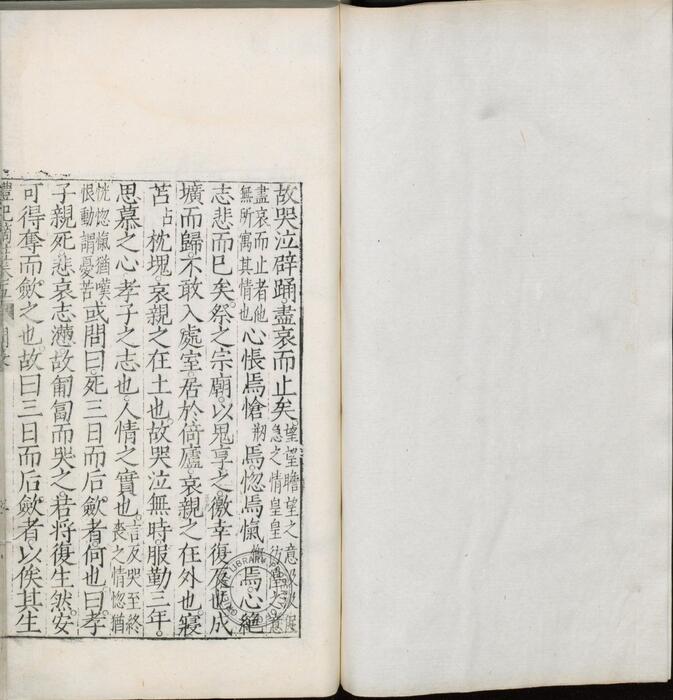 故哭泣辟踊盡哀而止矣望望瞻望之意
急之情皇皇
盡哀而止者他
無所寓其情也心悵焉愴焉惚焉愾焉心絕
志悲而已矣祭之宗廟以鬼享之徼幸復反也成
壙而歸不敢入處室居於倚廬哀親之在外也寢
苫占枕塊哀親之在土也故哭泣無時服勤三年
思慕之心孝子之志也人情之實也言反哭至終
喪之情惚猶
恍惚愾猶嘆
恨動謂憂苦或問曰死三日而后歛者何也曰孝
子親死悲哀志懣故匍匐而哭之若將復生然安
可得奪而歛之也故曰三日而后歛者以俟其生
LIBRARY